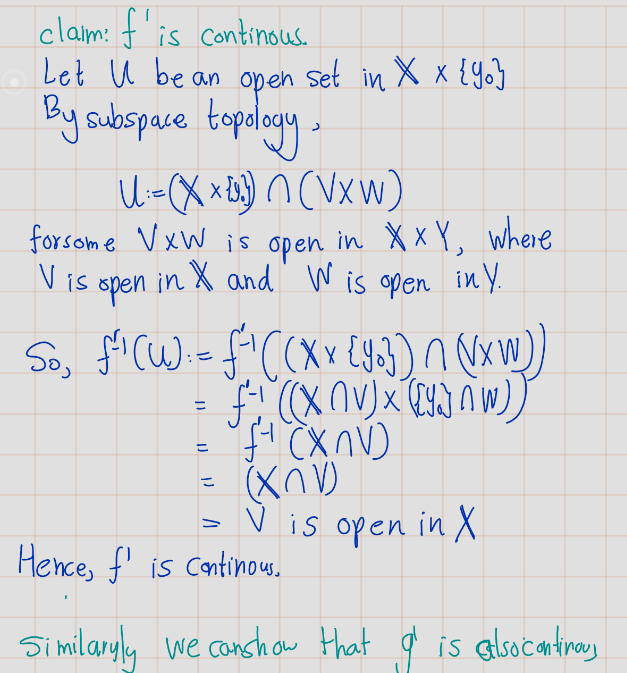 claim: f' is continous.
Let U be an open set in X × {y₀}
By subspace topology,
U:=(X × {y₀}) ∩ (V×W)
forsome V×W is open in X×Y, where
V is open in X and W is open in Y.
So, f'⁻¹(U):= f'⁻¹((X × {y₀}) ∩ (V×W))
= f'⁻¹((X∩V)×({y₀}∩W))
= f'⁻¹(X∩V)
= (X∩V)
= V is open in X
Hence, f' is Continous.
Similaryly we canshow that g' is also continous